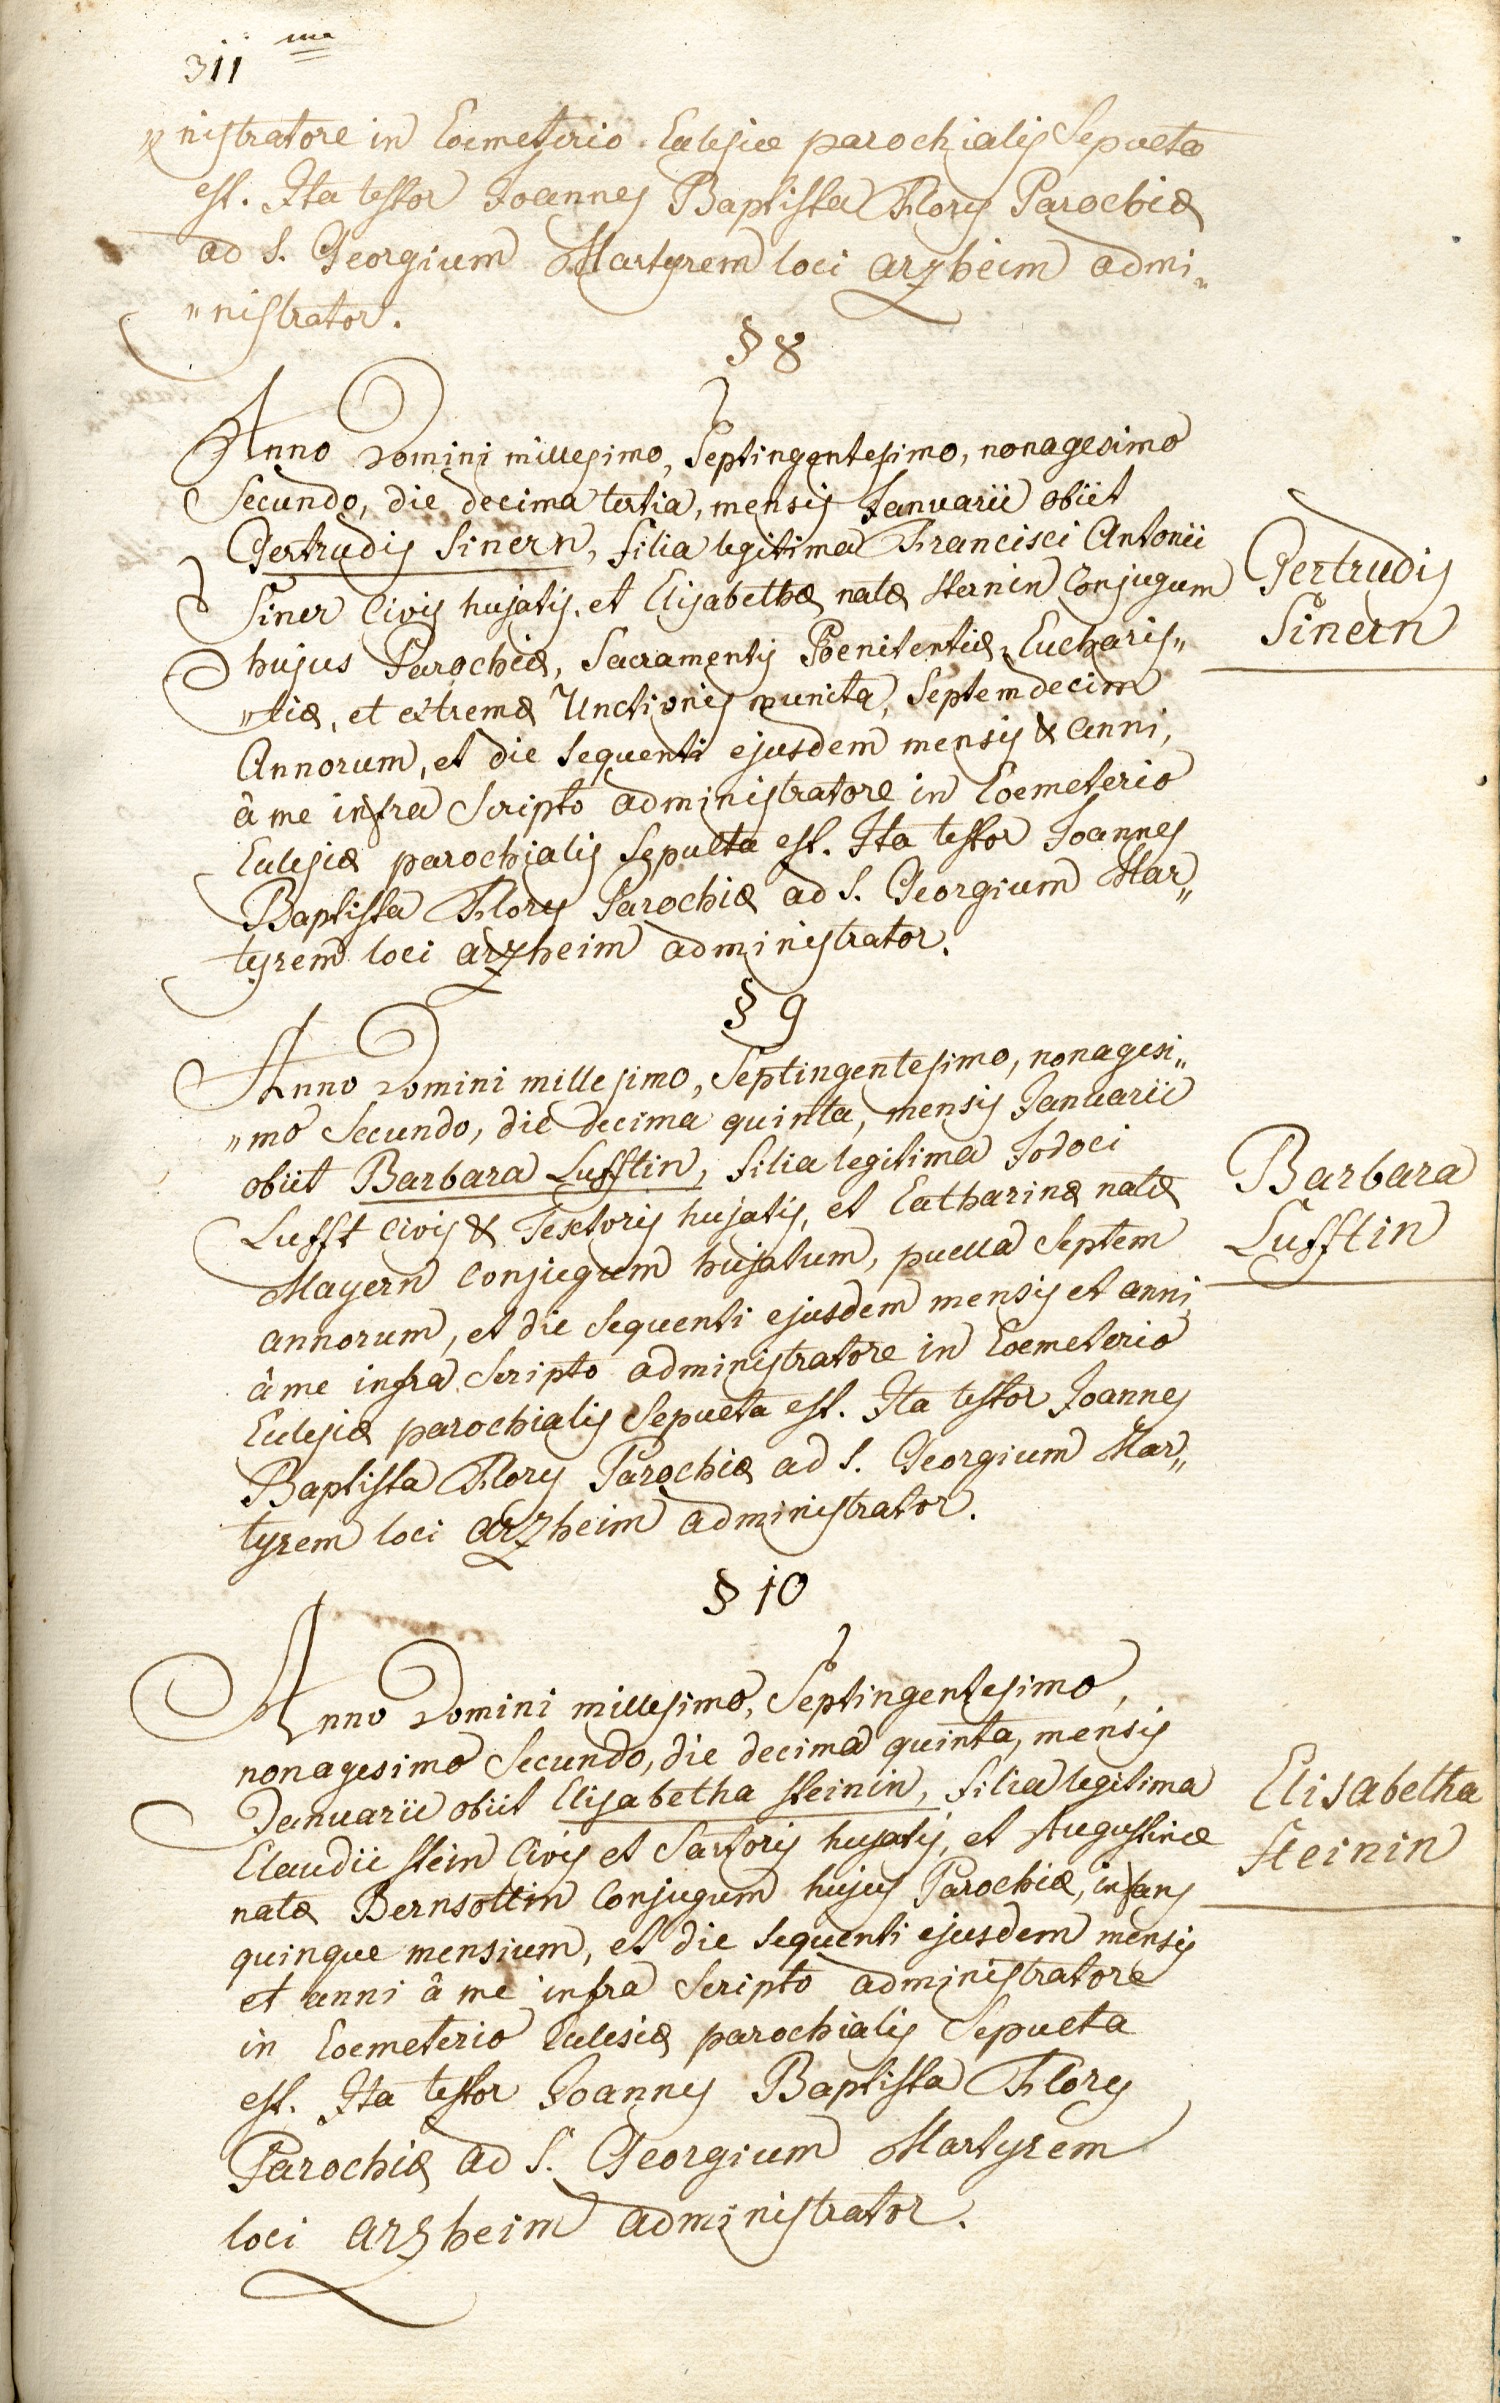 311 ma
„nistratore in Coemeterio Eclesiæ parochialis Sepulta
est. Ita testor Joannes Baptista Flory Parochiæ
ad S. Georgium Martyrem loci arzheim admi„
„nistrator.
§ 8
Anno Domini millesimo, Septingentesimo, nonagesimo
Secundo, die decima tertia, mensis Januarii obiit
Gertrudis Sinern, filia legitima Francisci Antonii
Siner Civis hujatis, et Elisabethæ natæ Sternin Conjugum
hujus Parochiæ, Sacramentis Poenitentiæ, Eucharis„
„tiæ, et extremæ Unctionis munita, Septemdecim
Annorum, et die Sequenti ejusdem mensis & anni,
à me infra Scripto administratore in Coemeterio
Eclesiæ parochialis Sepulta est. Ita testor Joannes
Baptista Flory Parochiæ ad S. Georgium Mar„
tyrem loci arzheim administrator.
Gertrudis
Sinern
§ 9
Anno Domini millesimo, Septingentesimo, nonagesi„
„mo Secundo, die decima quinta, mensis Januarii
obiit Barbara Lufftin, filia legitima Jodoci
Lufft Civis & Textoris hujatis, et Catharinæ natæ
Mayern Conjugum hujatum, puella Septem
annorum, et die Sequenti ejusdem mensis et anni,
à me infra Scripto administratore in Coemeterio
Eclesiæ parochialis Sepulta est. Ita testor Joannes
Baptista Flory Parochiæ ad S. Georgium Mar„
tyrem loci arzheim administrator.
Barbara
Lufftin
§ 10
Anno Domini millesimo, Septingentesimo,
nonagesimo Secundo, die decima quinta, mensis
Januarii obiit Elisabetha Steinin, filia legitima
Claudii Stein Civis et Sartoris hujatis, et Augustinæ
natæ Bernsottin Conjugum hujus Parochiæ, infans
quinque mensium, et die Sequenti ejusdem mensis
et anni à me infra Scripto administratore
in Coemeterio Eclesiæ parochialis Sepulta
est. Ita testor Joannes Baptista Flory
Parochiæ ad S. Georgium Martyrem
loci arzheim administrator.
Elisabetha
Steinin